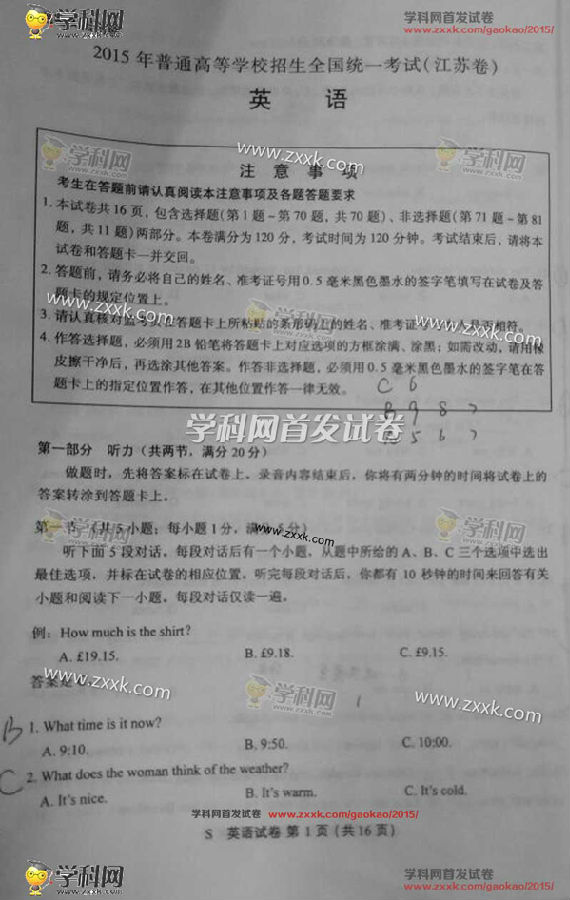 学科网 学科网首发试卷
www.zxxk.com/gaokao/2015/
2015年普通高等学校招生全国统一考试(江苏卷)
英 语
学科网 www.zxxk.com 学科网
注 意 事 项
考生在答题前请认真阅读本注意事项及各题答题要求
1. 本试卷共16页,包含选择题(第1题~第70题,共70题)、非选择题(第71题~第81
题,共11题)两部分。本卷满分为120分,考试时间为120分钟。考试结束后,请将本
试卷和答题卡一并交回。
2. 答题前,请务必将自己的姓名、准考证号用0.5毫米黑色墨水的签字笔填写在试卷及答
题卡的规定位置上。
www.zxxk.com 学科网 www.zxxk.com
3. 请认真核对监考员在答题卡上所粘贴的条形码上的姓名、准考证号与本人是否相符。
4. 作答选择题,必须用2B铅笔将答题卡上对应选项的方框涂满、涂黑;如需改动,请用橡
皮擦干净后,再选涂其他答案。作答非选择题,必须用0.5毫米黑色墨水的签字笔在答
题卡上的指定位置作答,在其他位置作答一律无效。
C 6
学科网首发试卷
第一部分 听力(共两节,满分20分)
做题时,先将答案标在试卷上。录音内容结束后,你将有两分钟的时间将试卷上的
答案转涂到答题卡上。
第一节 (共5小题;每小题1分,满分5分)
学科网 www.zxxk.com 学科网
听下面5段对话,每段对话后有一个小题,从题中所给的A、B、C三个选项中选出
最佳选项,并标在试卷的相应位置。听完每段对话后,你都有10秒钟的时间来回答有关
小题和阅读下一小题,每段对话仅读一遍。
例: How much is the shirt?
A. £19.15. B. £9.18. C. £9.15.
答案是
www.zxxk.com 学科网 www.zxxk.com
B 1. What time is it now?
A. 9:10. B. 9:50. C. 10:00.
C 2. What does the woman think of the weather?
A. It's nice. B. It's warm. C. It's cold.
学科网首发试卷 www.zxxk.com/gaokao/2015/
S 英语试卷 第1页(共16页)
学科网 学科网首发试卷
www.zxxk.com/gaokao/2015/